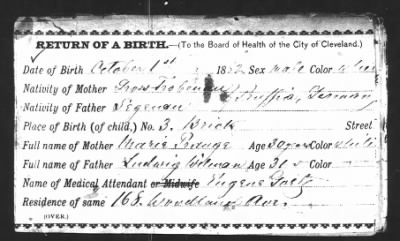 RETURN OF A BIRTH.—(To the Board of Health of the City of Cleveland.)
Date of Birth October 1st 1882 Sex male Color white
Nativity of Mother Prussia, Germany
Nativity of Father
Place of Birth (of child,) No. 3. Brick Street
Full name of Mother Marie Prange Age 30 Color white
Full name of Father Ludwig Age 31 Color
Name of Medical Attendant or Midwife Eugene Goetz
Residence of same 165 Woodland Ave.
(OVER.)